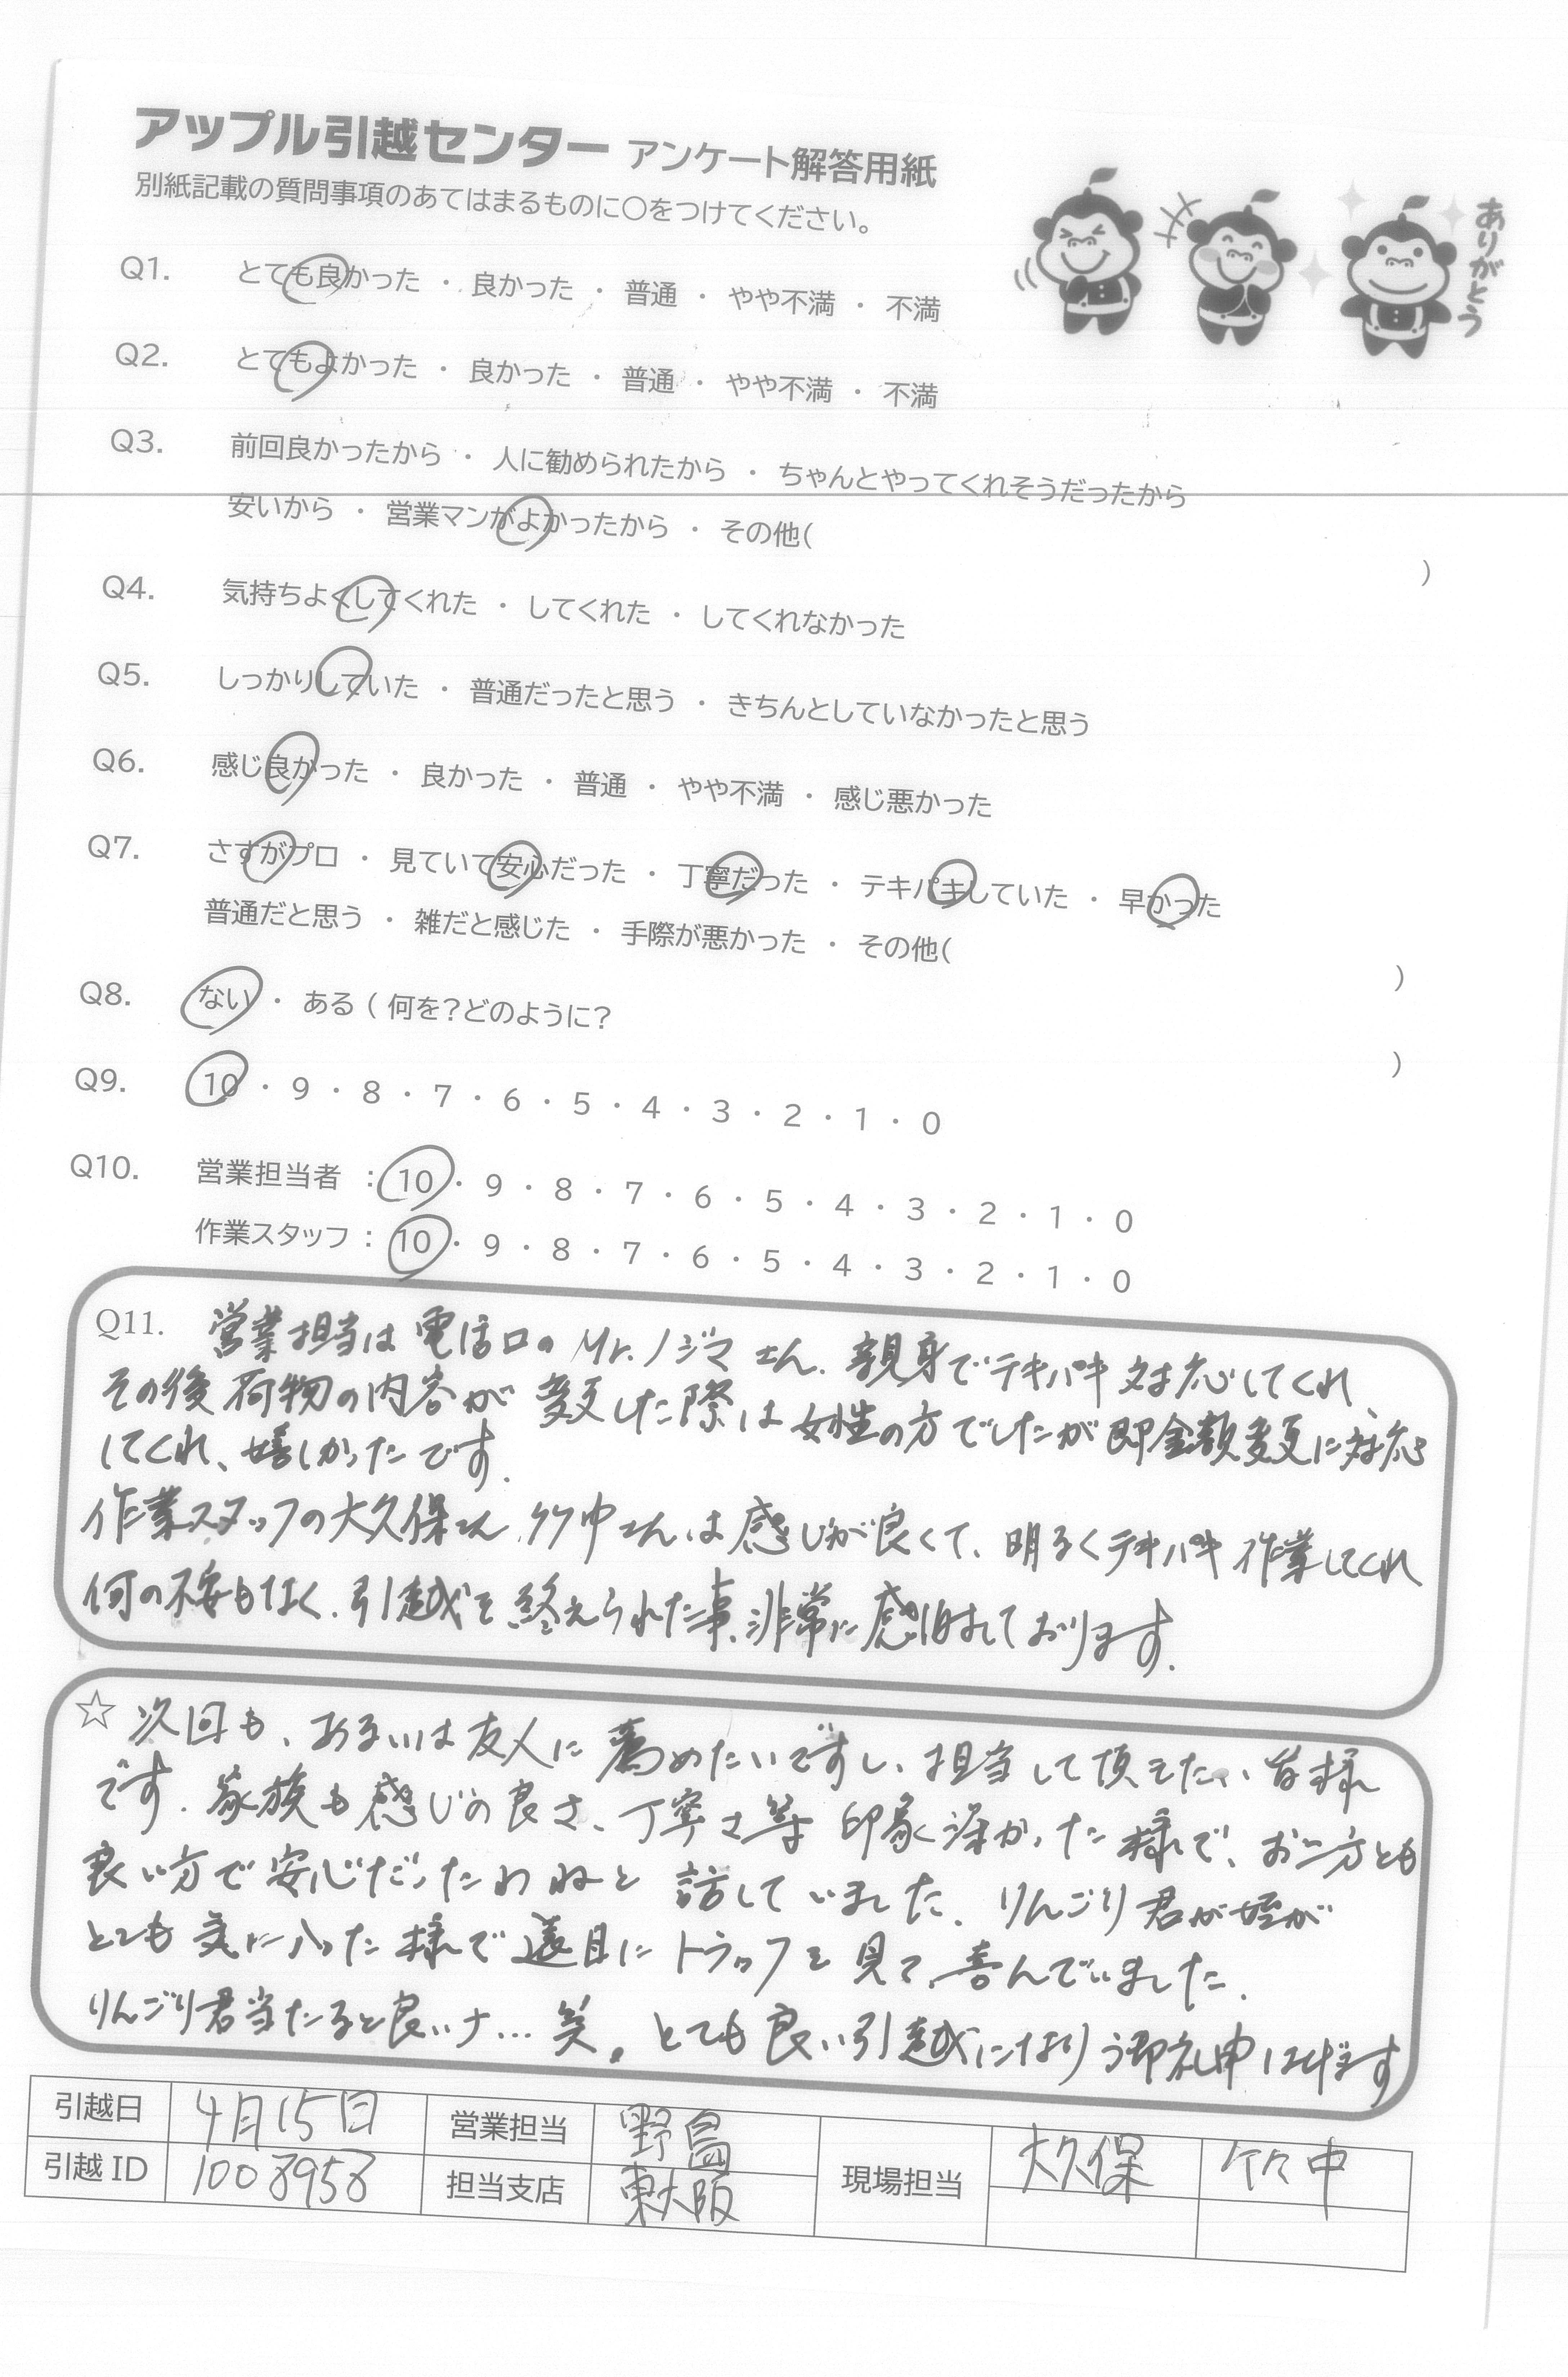 アップル引越センター アンケート解答用紙
別紙記載の質問事項のあてはまるものに〇をつけてください。
ありがとう
Q1. とても良かった ・ 良かった ・ 普通 ・ やや不満 ・ 不満
Q2. とてもよかった ・ 良かった ・ 普通 ・ やや不満 ・ 不満
Q3. 前回良かったから ・ 人に勧められたから ・ ちゃんとやってくれそうだったから
安いから ・ 営業マンがよかったから ・ その他( )
Q4. 気持ちよくしてくれた ・ してくれた ・ してくれなかった
Q5. しっかりしていた ・ 普通だったと思う ・ きちんとしていなかったと思う
Q6. 感じ良かった ・ 良かった ・ 普通 ・ やや不満 ・ 感じ悪かった
Q7. さすがプロ ・ 見ていて安心だった ・ 丁寧だった ・ テキパキしていた ・ 早かった
普通だと思う ・ 雑だと感じた ・ 手際が悪かった ・ その他( )
Q8. ない ・ ある ( 何を?どのように? )
Q9. 10 ・ 9 ・ 8 ・ 7 ・ 6 ・ 5 ・ 4 ・ 3 ・ 2 ・ 1 ・ 0
Q10. 営業担当者 : 10 ・ 9 ・ 8 ・ 7 ・ 6 ・ 5 ・ 4 ・ 3 ・ 2 ・ 1 ・ 0
作業スタッフ : 10 ・ 9 ・ 8 ・ 7 ・ 6 ・ 5 ・ 4 ・ 3 ・ 2 ・ 1 ・ 0
Q11. 営業担当は電話口のMr.ノジマさん、親身でテキパキ対応してくれ、
その後荷物の内容が変更した際は女性の方でしたが即金額変更に対応
してくれ、嬉しかったです。
作業スタッフの大久保さん、竹中さんは感じが良くて、明るくテキパキ作業してくれ
何の不安もなく、引越を終えられた事、非常に感謝しております。
☆ 次回も、あるいは友人に薦めたいですし、担当して頂きたい皆様
です。家族も感じの良さ、丁寧さ等印象深かった様で、お二方とも
良い方で安心だったわねと話していました。りんごり君が姪が
とても気に入った様で遠目にトラックを見て、喜んでいました。
りんごり君当たると良いナ…笑。とても良い引越になり御礼申し上げます
引越日 4月15日 営業担当 野島 現場担当 大久保 竹中
引越ID 1008958 担当支店 東大阪